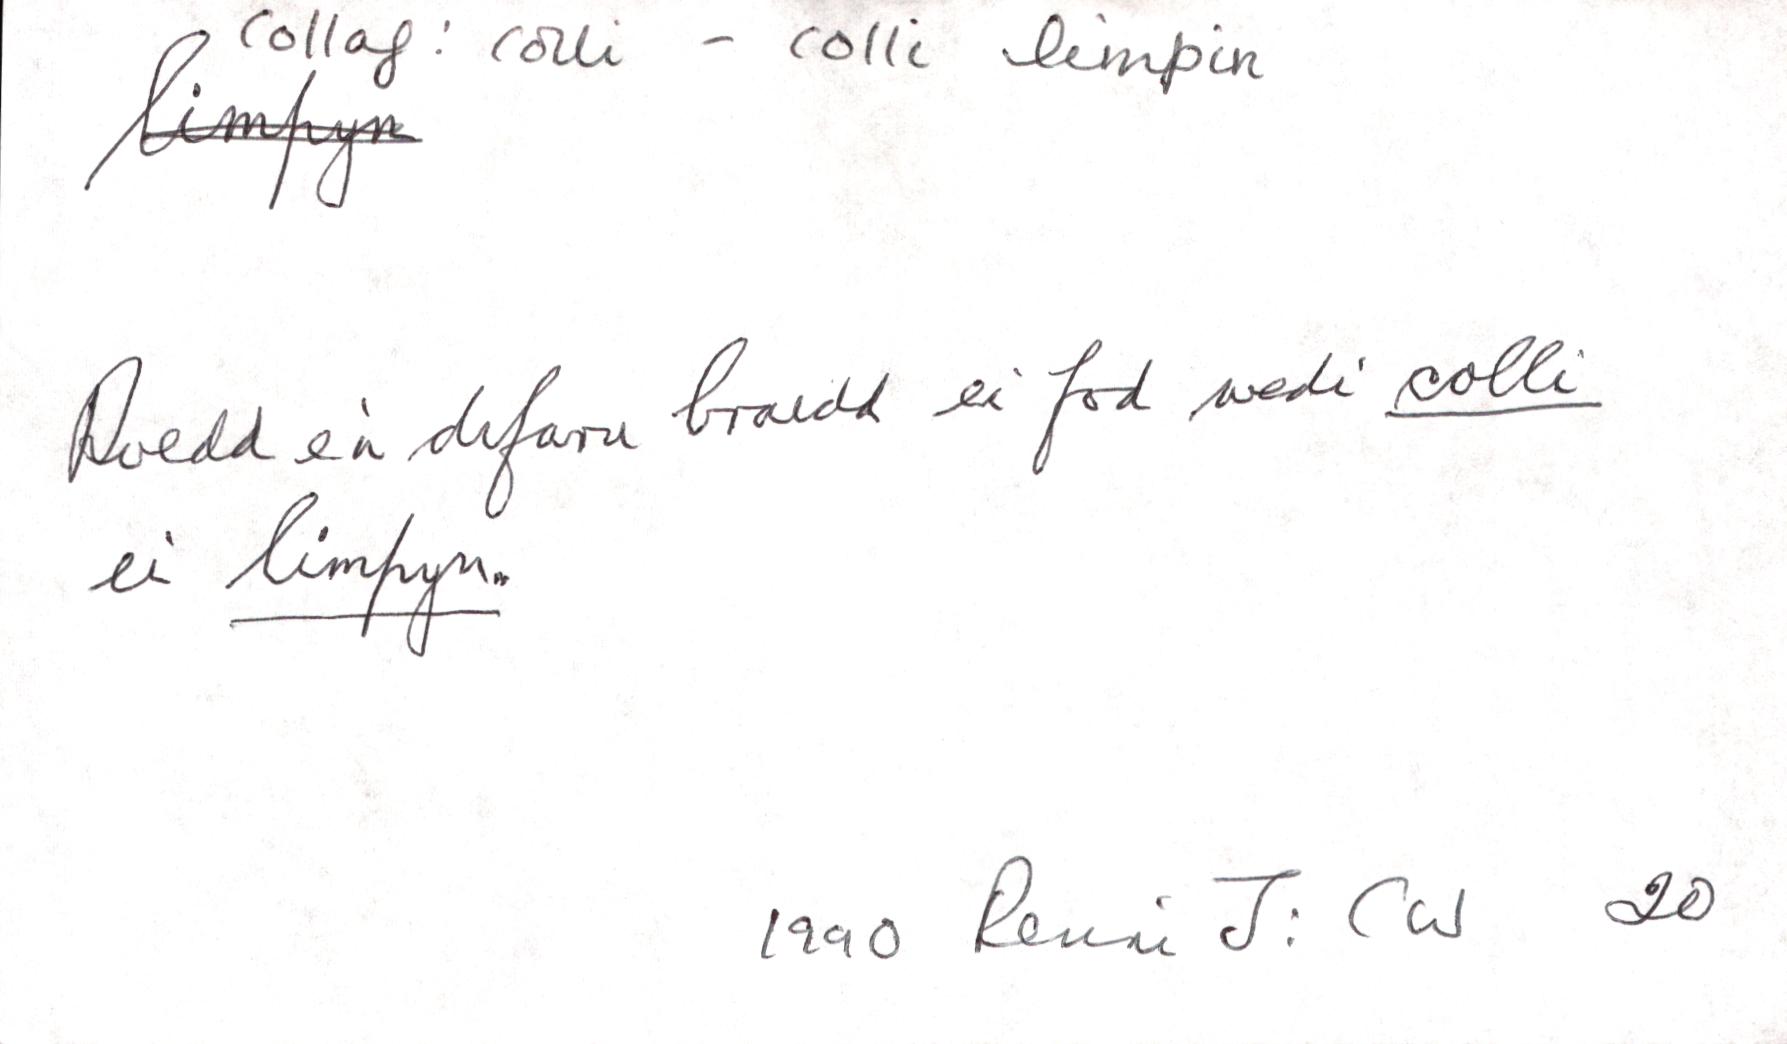 collaf: colli - colli limpin
limpyn
Roedd e'n difaru braidd ei fod wedi colli
ei limpyn.
1990 Renni J: CW 20